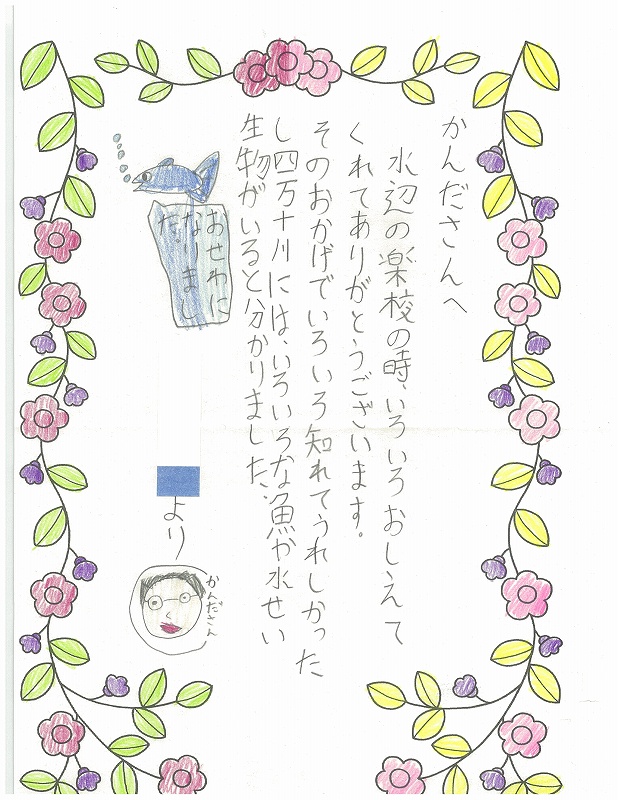 かんださんへ
水辺の楽校の時、いろいろおしえて
くれてありがとうございます。
そのおかげでいろいろ知れてうれしかった
し四万十川には、いろいろな漁や水せい
生物がいると分かりました。
おせわに
なりまし
た。
より
かんださん